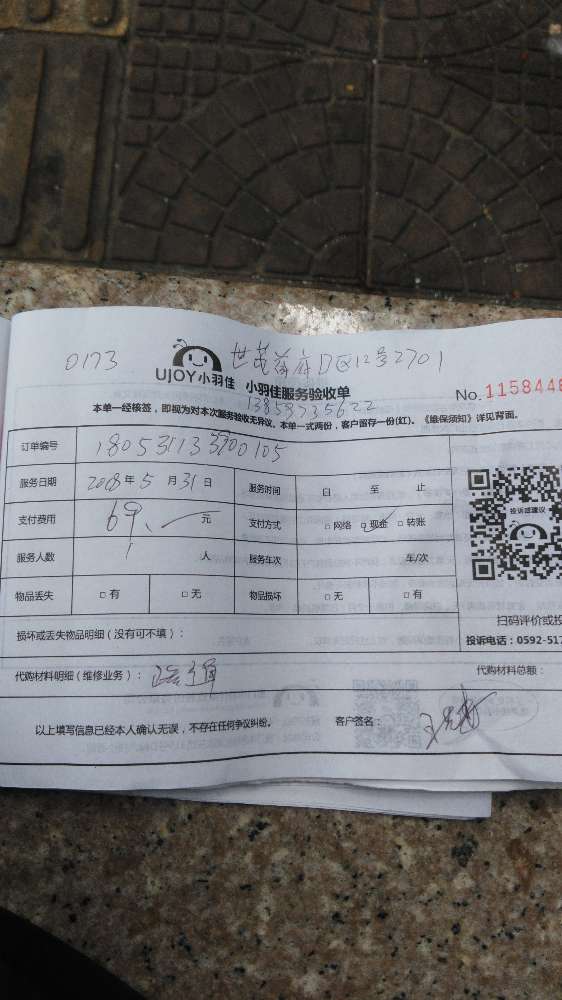 0173
世茂御府D区12号2701
UJOY小羽佳 小羽佳服务验收单 No. 1158448
13859735622
本单一经核签，即视为对本次服务验收无异议。本单一式两份，客户留存一份(红)。《维保须知》详见背面。
订单编号 180531133200105
服务日期 2018年5月31日 服务时间 自 至 止
支付费用 69. 元 支付方式 □网络 □现金 □转账
投诉或建议
服务人数 1 人 服务车次 车/次
物品丢失 □有 □无 物品损坏 □无 □有
扫码评价或投
损坏或丢失物品明细（没有可不填）：
投诉电话：0592-517
代购材料明细（维修业务）：疏通 代购材料总额：
以上填写信息已经本人确认无误，不存在任何争议纠纷。 客户签名：